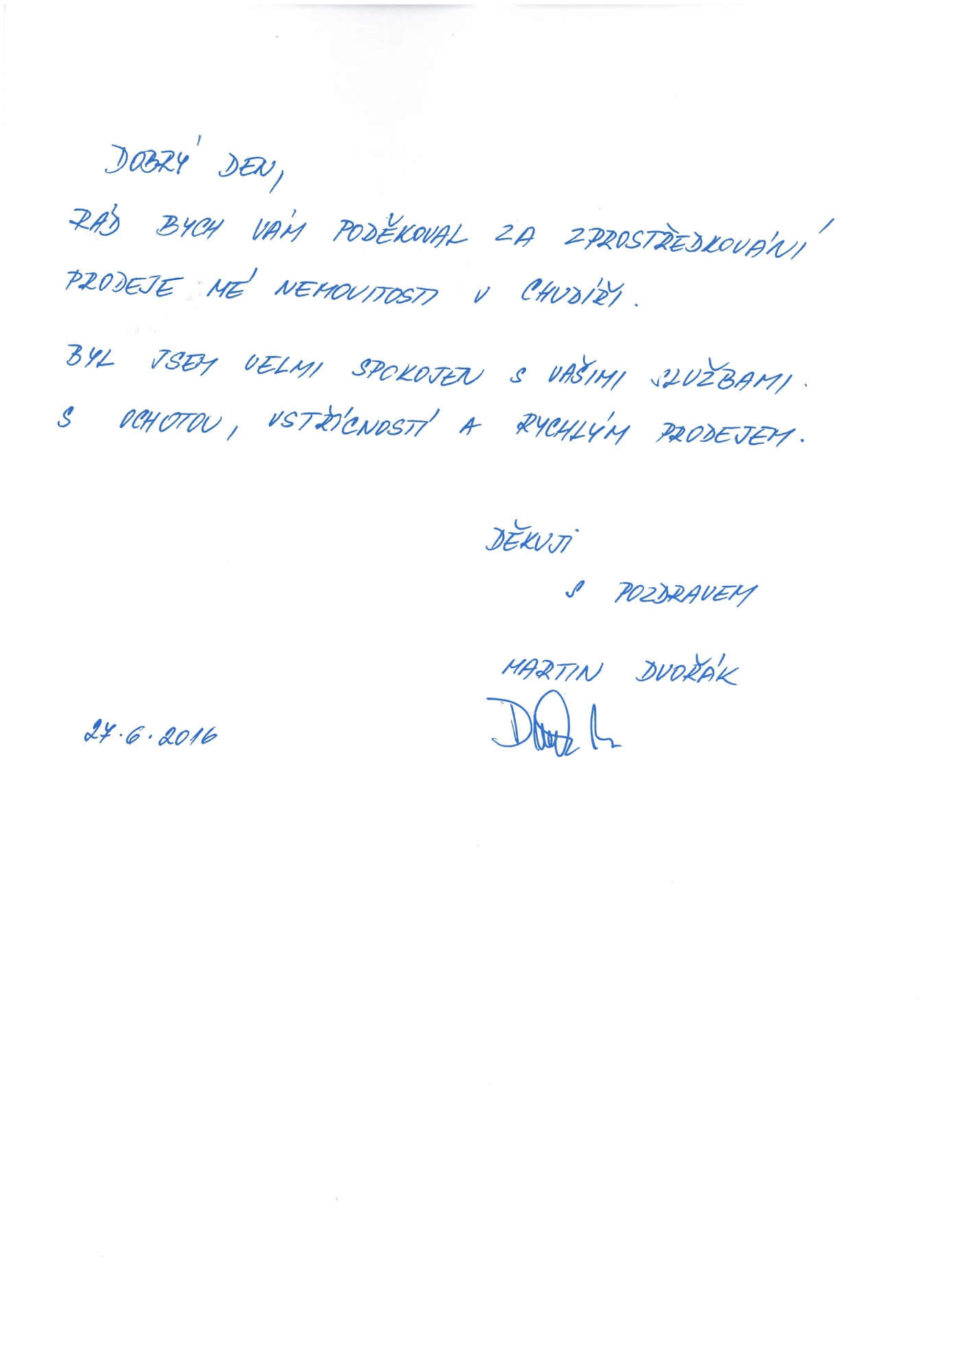 DOBRÝ DEN,
RÁD BYCH VÁM PODĚKOVAL ZA ZPROSTŘEDKOVÁNÍ
PRODEJE MÉ NEMOVITOSTI V CHUDÍŘI.
BYL JSEM VELMI SPOKOJEN S VAŠIMI SLUŽBAMI.
S OCHOTOU, VSTŘÍCNOSTÍ A RYCHLÝM PRODEJEM.
DĚKUJI
S POZDRAVEM
MARTIN DVOŘÁK
27.6.2016